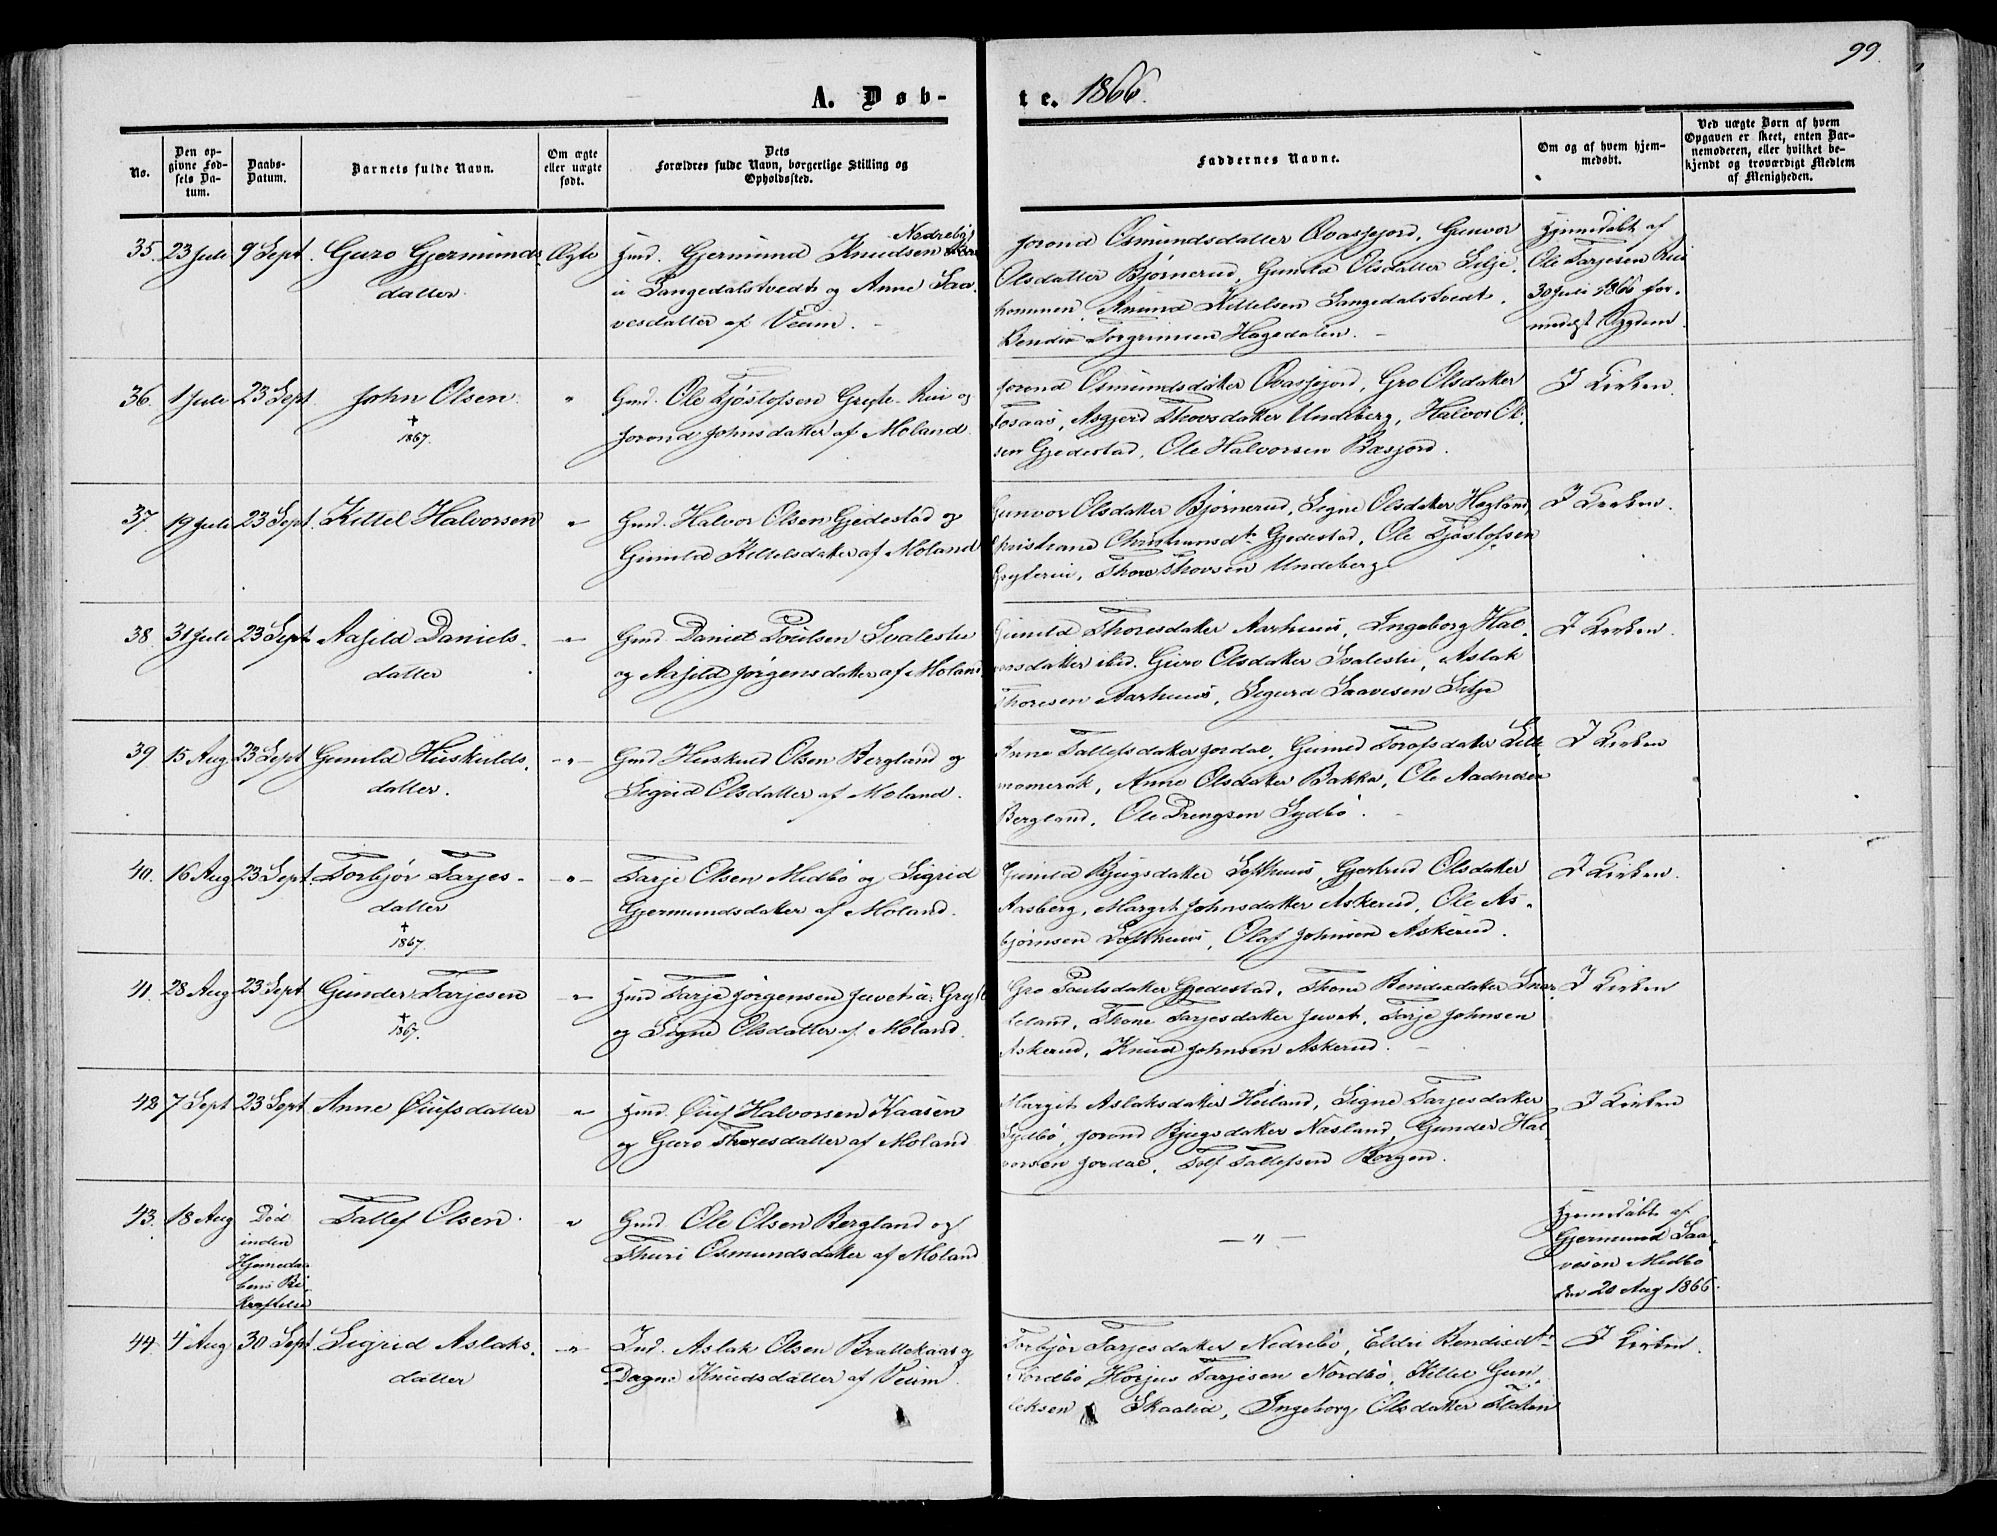 99.
A. Døb-
te. 1866.
No.
Den op-
givne Fød-
sels Da-
tum.
Daabs-
Datum.
Barnets fulde Navn.
Om ægte
eller uægte
født.
Dets
Forældres fulde Navn, borgerlige Stilling og
Opholdssted.
Faddernes Navne.
Om og af hvem hjem-
medøbt.
Ved uægte Børn af hvem
Opgaven er skeet, enten Bar-
nemoderen, eller hvilket be-
kjendt og troværdigt Medlem
af Menigheden.
35. 23 Juli 9 Sept. Guro Gjermunds-
datter.
Ægte
Nedrebø
Hmd. Gjermund Knudsen
u Langedalstvedt og Anne Saa-
vesdatter af Veum.
Jorond Osmundsdatter Qvasfjord, Gunvor
Olsdatter Bjørnerud, Gunild Olsdatter Silje-
kommen, Anund Kittelsen Langedalstvedt,
Bendix Torgrimsen Hagedalen.
Hjemmedøbt af
Ole Tarjesen Rui
30 Juli 1866 for-
medelst Sygdom.
36. 1 Juli 23 Sept. John Olsen.
†
1867.
"
Gmd. Ole Tjøstolfsen Gryte-Rui og
Jorond Johnsdatter af Moland.
Jorond Osmundsdatter Qvasfjord, Gro Olsdatter
Fosaas, Asgjerd Thorsdatter Undeberg, Halvor Ol-
sen Gjedestad, Ole Halvorsen Rasfjord.
I Kirken.
37. 19 Juli 23 Sept. Kittel Halvorsen
"
Gmd. Halvor Olsen Gjedestad og
Gunild Kittelsdatter af Moland
Gunvor Olsdatter Bjørnerud, Signe Olsdatter Hegland,
Christiane Christiansdt. Gjedestad, Ole Tjøstolfsen
Gryterui, Thore Thorsen Undeberg.
I Kirken.
38. 31 Juli 23 Sept. Aasild Daniels-
datter
"
Gmd. Daniel Poulsen Svalestu
og Aasild Jørgensdatter af Moland.
Gunild Thoresdatter Aarhuus, Ingeborg Hal-
vorsdatter ibid. Guro Olsdatter Svalestu, Aslak
Thoresen Aarhuus, Sigurd Saavesen Silje
I Kirken.
39 15 Aug 23 Sept Gunild Huskulds-
datter.
-"-
Gmd Huskuld Olsen Bergland og
Sigrid Olsdatter af Moland.
Anne Tallefsdatter Jordal, Gunild Torofsdatter Lille
momerak, Anne Olsdatter Bakka, Ole Aadnesen
Bergland, Ole Drengsen Sydbø.
I Kirken
40. 16 Aug 23 Sept. Torbjør Tarjes-
datter
†
1867.
-"-
Tarje Olsen Midbø og Sigrid
Gjermundsdatter af Moland.
Gunild Bjugsdatter Lofthuus, Gjertrud Olsdatter
Aasberg, Margit Johnsdatter Askerud, Ole As-
bjørnsen Lofthuus, Olaf Johnsen Askerud.
I Kirken.
41. 28 Aug 23 Sept Gunder Tarjesen
†
1867.
"
Hmd Tarje Jørgensen Juvet u. Gryt
og Signe Olsdatter af Moland.
Gro Poulsdatter Gjedestad, Thone Bendixdatter Snar-
teland, Thone Tarjesdatter Juvet, Tarje Johnsen
Askerud, Knud Johnsen Askerud.
I Kirken
42 7 Sept 23 Sept Anne Øiufsdatter
"
Hmd. Øiuf Halvorsen Kaasen
og Guro Thoresdatter af Moland
Margit Aslaksdatter Høiland, Signe Tarjesdatter
Sydbø, Jorond Bjugsdatter Næsland, Gunder Hal-
vorsen Jordal, Tolf Tallefsen Borgen.
I Kirken
43. 18 Aug Død
inden
Hjemedaa
bens Be-
kræftelse
Tallef Olsen.
"
Gmd Ole Olsen Bergland og
Thuri Osmundsdatter af Moland
-"-
Hjemmedøbt af
Gjermund Saa-
vesen Midbø
den 20 Aug 1866.
44. 4 Aug 30 Sept Sigrid Aslaks-
datter
-"-
Ind. Aslak Olsen Brattekaas og
Dagne Knudsdatter af Veum.
Torbjør Tarjesdatter Nedrebø, Eldri Bendixdt.
Nordbø Horjus Tarjesen Nordbø, Kittel Gun-
leksen Skaalid, Ingeborg Olsdatter Flaten
I Kirken.